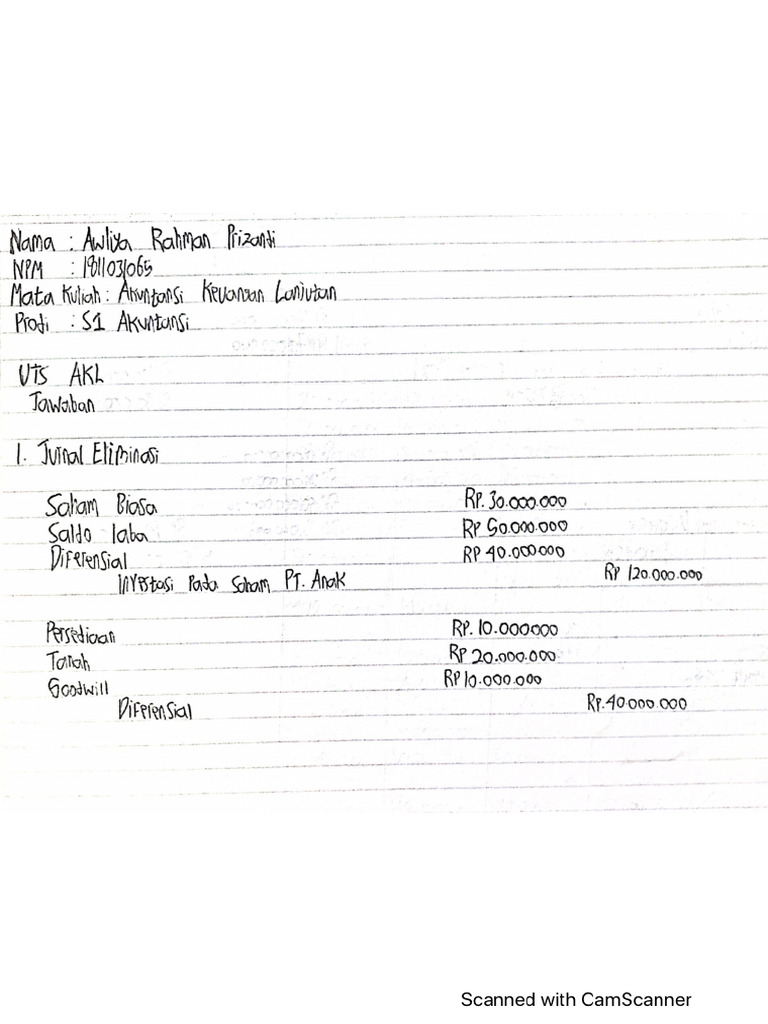 Nama : Awliya Rahman Prizanti
NPM : 1811031065
Mata Kuliah : Akuntansi Keuangan Lanjutan
Prodi : S1 Akuntansi
UTS AKL
Jawaban
1. Jurnal Eliminasi
Saham Biasa Rp. 30.000.000
Saldo laba Rp 50.000.000
Diferensial Rp 40.000.000
Investasi Pada Saham PT. Anak Rp 120.000.000
Persediaan Rp. 10.000000
Tanah Rp 20.000.000
Goodwill Rp 10.000.000
Diferensial Rp. 40.000.000
Scanned with CamScanner